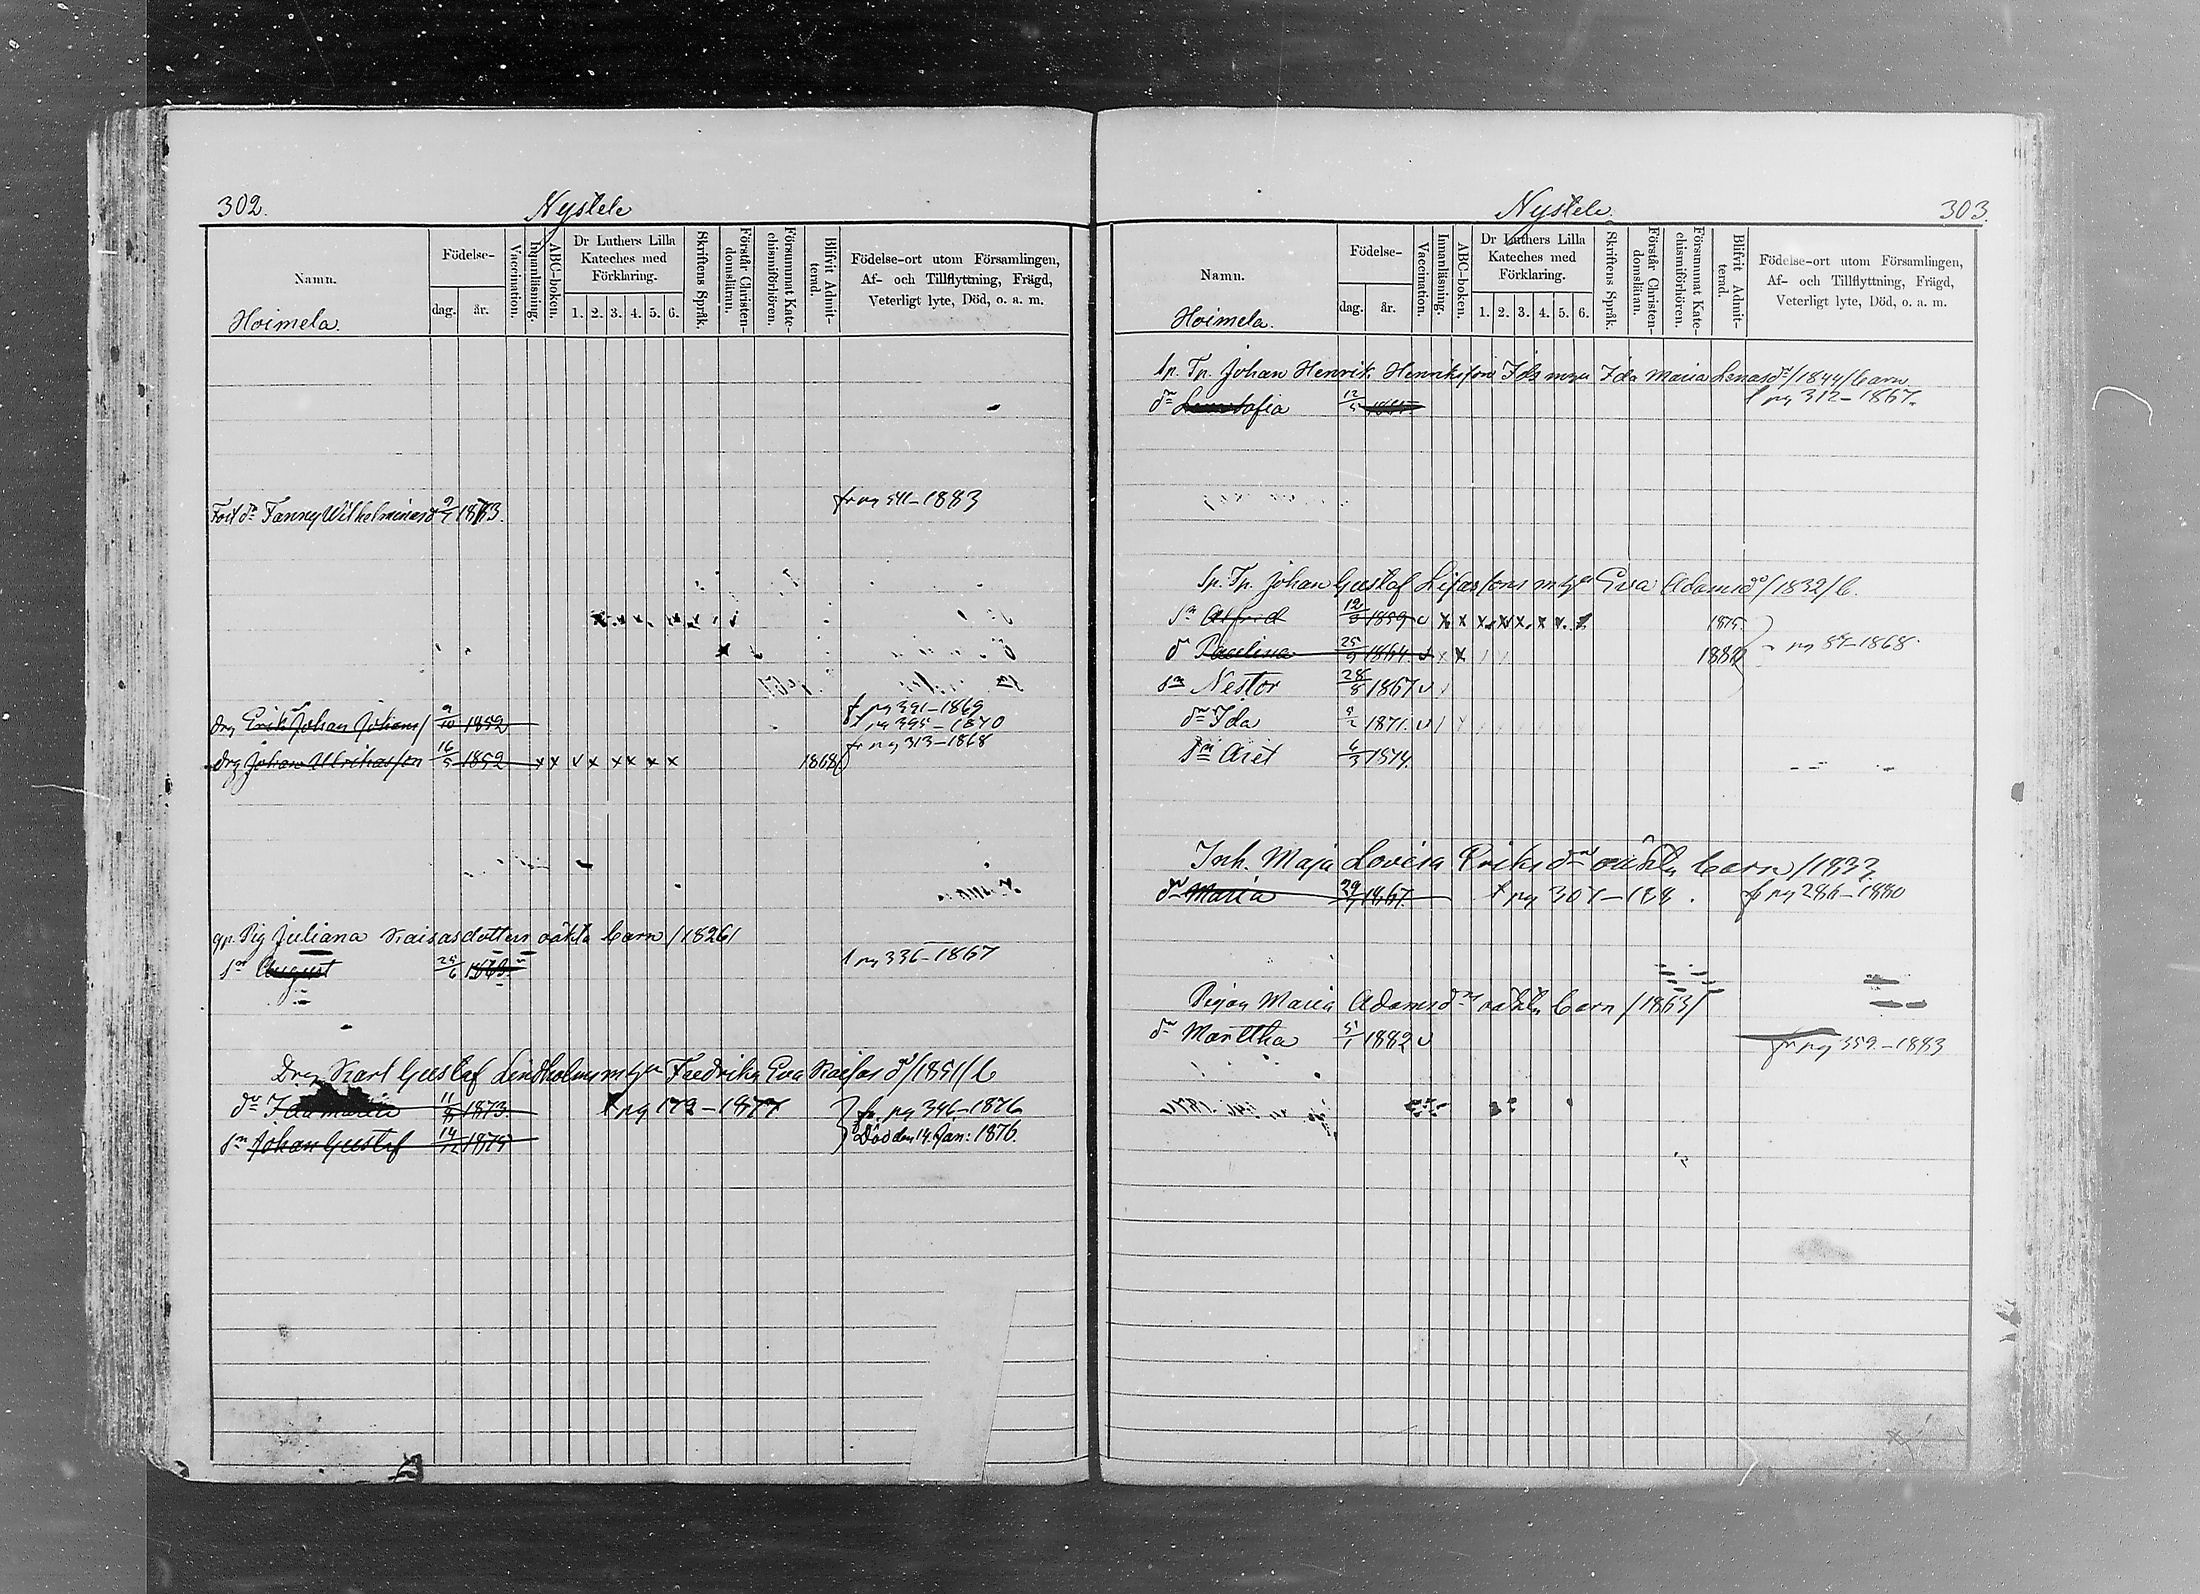 302.
Nystele
Namn.
Födelse-
dag.
år.
Vaccination.
Innanläsning.
ABC-boken.
Dr Luthers Lilla
Kateches med
Förklaring.
1. 2. 3. 4. 5. 6.
Skriftens Språk.
Förstår Christen-
domsläran.
Försummat Kate-
chismiförhören.
Blifvit Admit-
terad.
Födelse-ort utom Församlingen,
Af- och Tillflyttning, Frägd,
Veterligt lyte, Död, o. a. m.
Hoimela.
fr pg 541-1883
dr Fanny Wilhelmina 9/7
Drg Erik Johan Johans/ 9/10 1852
f pg 391-1869
pg 395-1870
fr pg 313-1868
drg Johan Ulrikasson 16/5 1852 x x v x x x x x 1868
Pig Juliana Kaisasdotters oäkta barn /1826/
sn August 25/6
t pg 336-1867
Drg Karl Gustaf Lindholms Fredrika Eva Kaisas dr /1851/ b
dr Ida Maria 11/9 1873. t pg 172-1877 fr. pg 346-1876
sn Johan Gustaf 14/12 1875 Död den 14 Jan: 1876.
Nystele.
303.
Namn.
Födelse-
dag.
år.
Vaccination.
Innanläsning.
ABC-boken.
Dr Luthers Lilla
Kateches med
Förklaring.
1. 2. 3. 4. 5. 6.
Skriftens Språk.
Förstår Christen-
domsläran.
Försummat Kate-
chismiförhören.
Blifvit Admit-
terad.
Födelse-ort utom Församlingen,
Af- och Tillflyttning, Frägd,
Veterligt lyte, Död, o. a. m.
Hoimela.
Sp. Tp. Johan Henrik Henriksson Ida Maria Lenas dr /1844/ barn
dr Sofia 12/5
t pg 312-1867.
Sp. Tp. Johan Gustaf Eva Adamsdr /1832/ b.
sn Alfred 12/3 1859 v x x x x x x x 1875.
dr Paulina 25/9 1864 v x x 1882 pg 87-1868
sn Nestor 28/8 1867 v
dr Ida 5/2 1871. v
sn Aret 6/3 1874.
Inh. Maja Lovisa Eriks drs oäkta barn /1837.
dr Maria 29/7 1867. t pg 307- fr pg 286-1880
Pigan Maria Adamsdrs oäkta barn /1863/
dr Marttha 5/1 1882 v
fr pg 359-1883